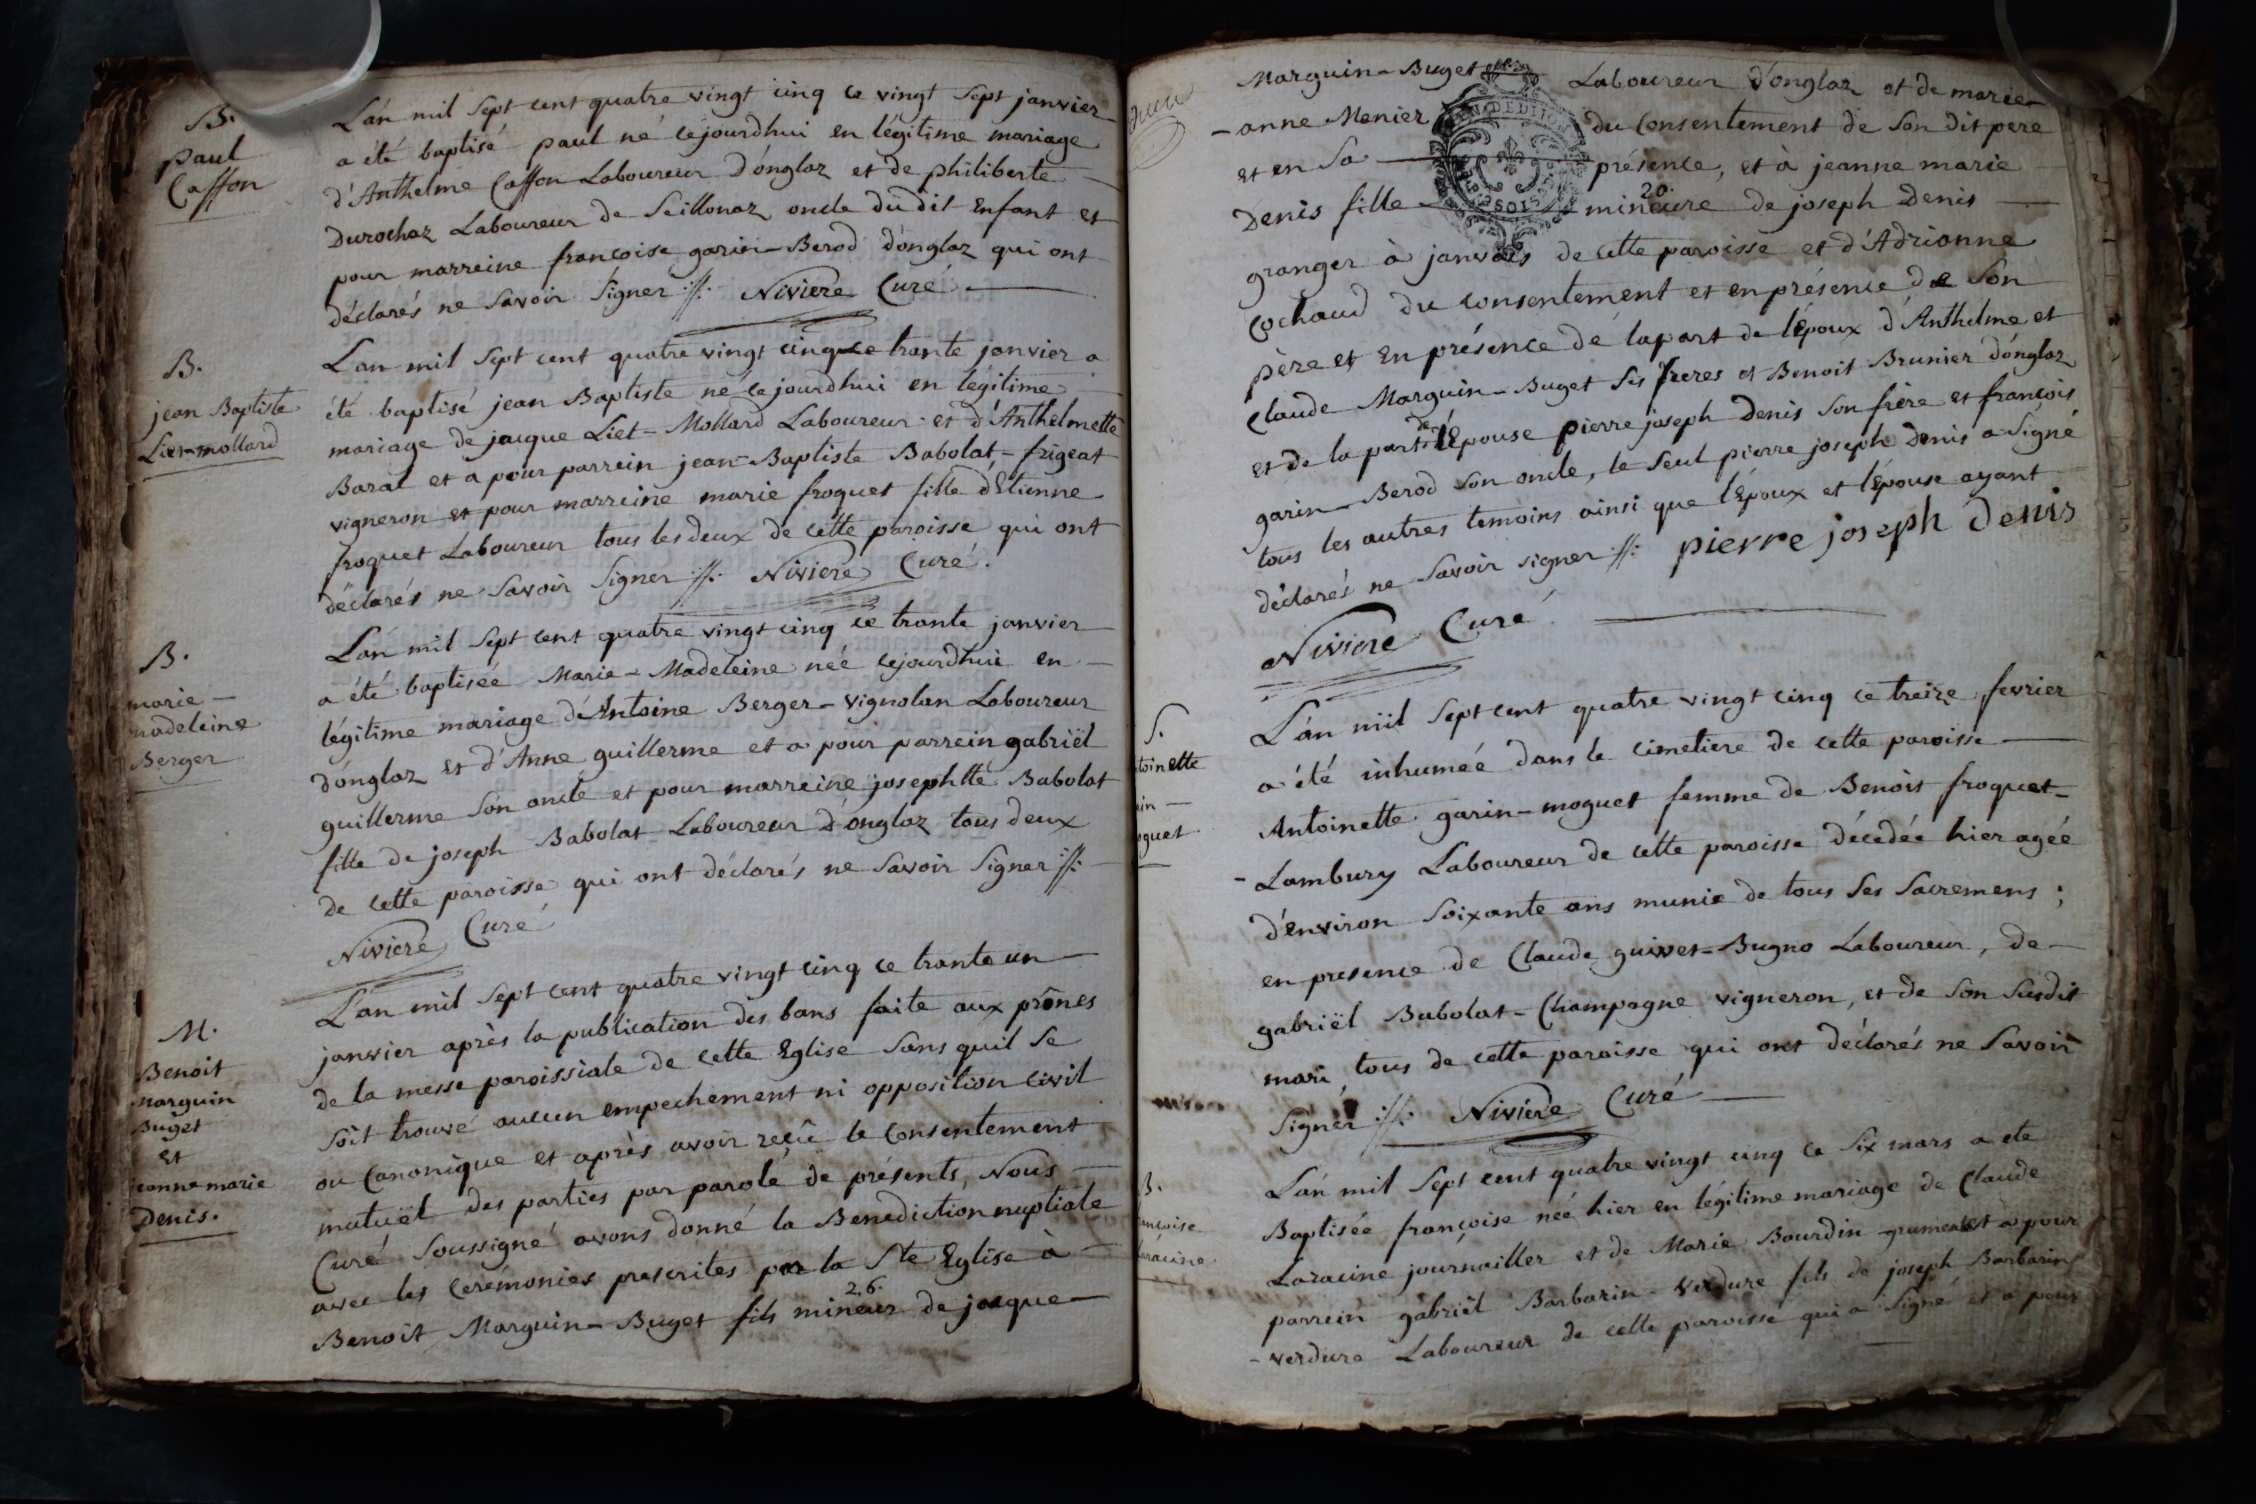 B.
paul
Caffon
L'an mil sept cent quatre vingt cinq ce vingt sept janvier
a été baptisé paul né cejourdhui en légitime mariage
d'Anthelme Caffon Laboureur d'onglaz et de philiberte
Durochaz Laboureur de Seillonaz oncle dudit Enfant et
pour marreine francoise garin-Berod d'onglaz qui ont
déclarés ne savoir signer ://: Niviere Curé
B.
jean Baptiste
Liet-mollard
L'an mil sept cent quatre vingt cinq ce trante janvier a
été baptisé jean Baptiste né cejourdhui en légitime
mariage de jacque Liet-Mollard Laboureur et d'Anthelmette
Barat et a pour parrein jean-Baptiste Babolat-frigeat
vigneron et pour marreine marie froquet fille d'Etienne
froquet Laboureur tous les deux de cette paroisse qui ont
déclarés ne savoir signer ://: Niviere Curé.
B.
marie-
madeleine
Berger
L'an mil sept cent quatre vingt cinq ce trante janvier
a été baptisée Marie-Madeleine née cejourdhui en
légitime mariage d'Antoine Berger-vignolan Laboureur
d'onglaz et d'Anne guillerme et a pour parrein gabriël
guillerme son oncle et pour marreine josephtte Babolat
fille de joseph Babolat Laboureur d'onglaz tous deux
de cette paroisse qui ont déclarés ne savoir signer ://:
Niviere Curé
M.
Benoit
Marguin
Buget
et
jeanne marie
Denis.
L'an mil sept cent quatre vingt cinq ce trante un
janvier après la publication des bans faite aux prônes
de la messe paroissiale de cette Eglise sans quil se
soit trouvé aucun empechement ni opposition civil
ou Canonique et après avoir reçû le Consentement
mutuël des parties par parole de présents, Nous
Curé soussigné avons donné la Benediction nuptiale
avec les cerémonies prescrites par la Ste Eglise à
26.
Benoit Marguin-Buget fils mineur de jacque
Marguin-Buget Laboureur d'onglaz et de marie-
-anne Menier du Consentement de son dit pere
et en sa présence, et à jeanne marie
20.
Denis fille mineure de joseph Denis
granger à janvais de cette paroisse et d'Adrianne
Cochaud du consentement et en présence de son
père et en présence de lapart de l'époux d'Anthelme et
Claude Marguin-Buget ses freres et Benoit Brunier d'onglaz
et de la part de l'Epouse pierre joseph Denis son frère et françois
garin-Berod son oncle, le seul pierre joseph Denis a signé
tous les autres temoins ainsi que l'Epoux et l'épouse ayant
déclarés ne savoir signer ://: pierre joseph denis
Niviere Curé
S.
toinette
in-
guet
L'an mil sept cent quatre vingt cinq ce treize fevrier
a été inhumée dans le cimetiere de cette paroisse
Antoinette garin-moguet femme de Benoit froquet-
-Lambury Laboureur de cette paroisse décedée hier agée
d'environ soixante ans munie de tous ses sacremens;
en presence de Claude guivet-Bugno Laboureur, de
gabriël Babolat-Champagne vigneron, et de son susdit
mari, tous de cette paroisse qui ont déclarés ne savoir
signer ://: Niviere Curé
B.
ançoise
aracine
L'an mil sept cent quatre vingt cinq ce six mars a ete
Baptisée françoise née hier en légitime mariage de Claude
Laracine journailler et de Marie Bourdin-grumeat et a pour
parrein gabriël Barbarin-verdure fils de joseph Barbarin
-verdure Laboureur de cette paroisse qui a signé et a pour